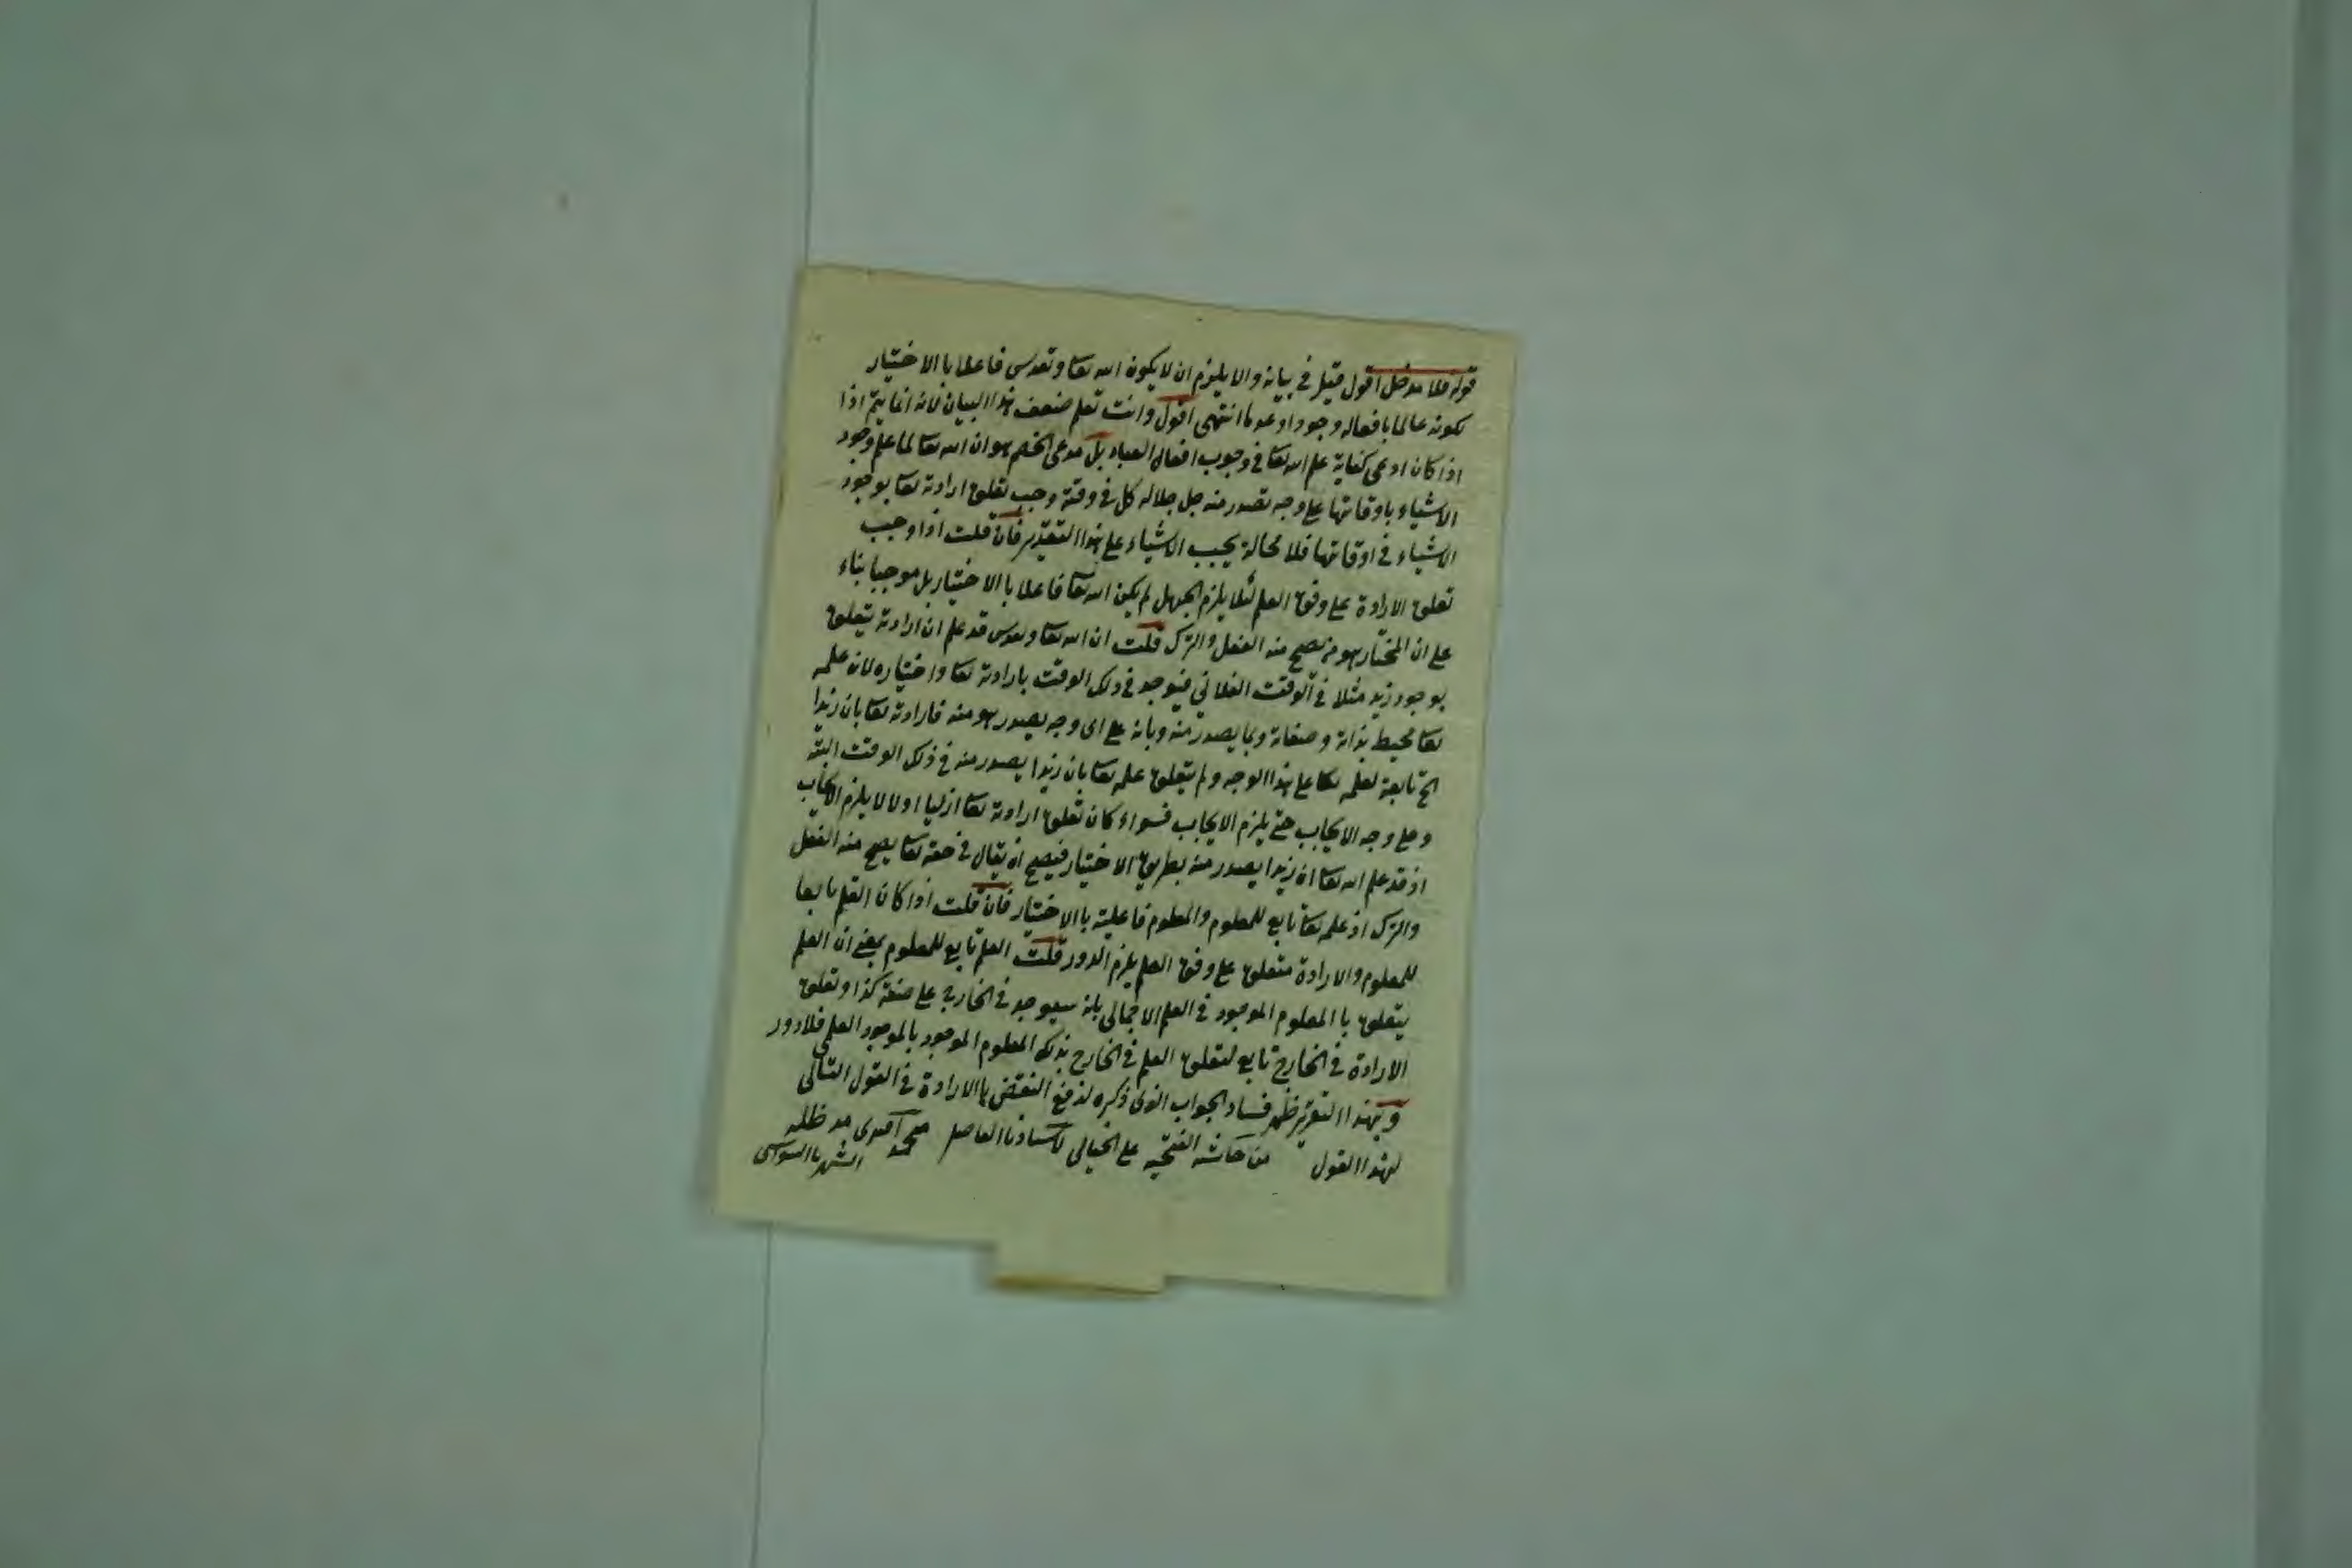 قوله فلا مدخل اقول قيل في بيانه والا يلزم ان لا يكون الله تعا وتقدس فاعلا بالاختيار
لكونه عالما بافعاله وجودا وعدما انتهى اقول وانت تعلم ضعف هذا البيان لانه انما يتم اذا
اذا كان ادعى كفاية علم الله تعا في وجوب افعال العباد بل مدعى الخصم هو ان الله تعا لما علم وجود
الاشياء باوقاتها على وجه تصدر منه جل جلاله كل في وقته وجب تعلق ارادته تعا بوجود
الاشياء في اوقاتها فلا محالة يجب الاشياء على هذا التقدير فان قلت اذا وجب
تعلق الارادة على وفق العلم لئلا يلزم الجهل لم يكن الله تعا فاعلا بالاختيار بل موجبا بناء
على ان المختار هو من يصح منه الفعل والترك قلت ان الله تعا وتقدس قد علم ان ارادته يتعلق
بوجود زيد مثلا في الوقت الفلاني فيوجد في ذلك الوقت بارادته تعا واختياره لان علمه
تعا محيط بذاته وصفاته وبما يصدر منه وبانه على اى وجه يصدر هو منه فارادته تعا بان زيدا
الخ تابعة لعلمه تعا على هذا الوجه ولم يتعلق علمه تعا بان زيدا يصدر منه في ذلك الوقت البتة
وعلى وجه الايجاب حتى يلزم الايجاب فسواء كان تعلق ارادته تعا ازليا اولا لا يلزم الايجاب
اذ قد علم الله تعا ان زيدا يصدر منه بطريق الاختيار فيصح ان يقال في حقه تعا يصح منه الفعل
والترك اذ علمه تعا تابع للمعلوم والمعلوم فاعليته بالاختيار فان قلت اذا كان العلم تابعا
للمعلوم والارادة متعلق على وفق العلم يلزم الدور قلت العلم تابع للمعلوم بمعنى ان العلم
يتعلق با المعلوم الموجود في العلم الاجمالى بانه سيوجد في الخارج على صفة كذا وتعلق
الارادة في الخارج تابع لتعلق العلم في الخارج بذلك المعلوم الموجود بالموجود العلمى فلا دور
وبهذا التقرير ظهر فساد الجواب الذى ذكره لدفع النقض بالارادة في القول التالى
لهذا القول من حاشيه الفتحيه على الخيالى لاستاذنا الفاضل محمد افندى مد ظله
الشهير